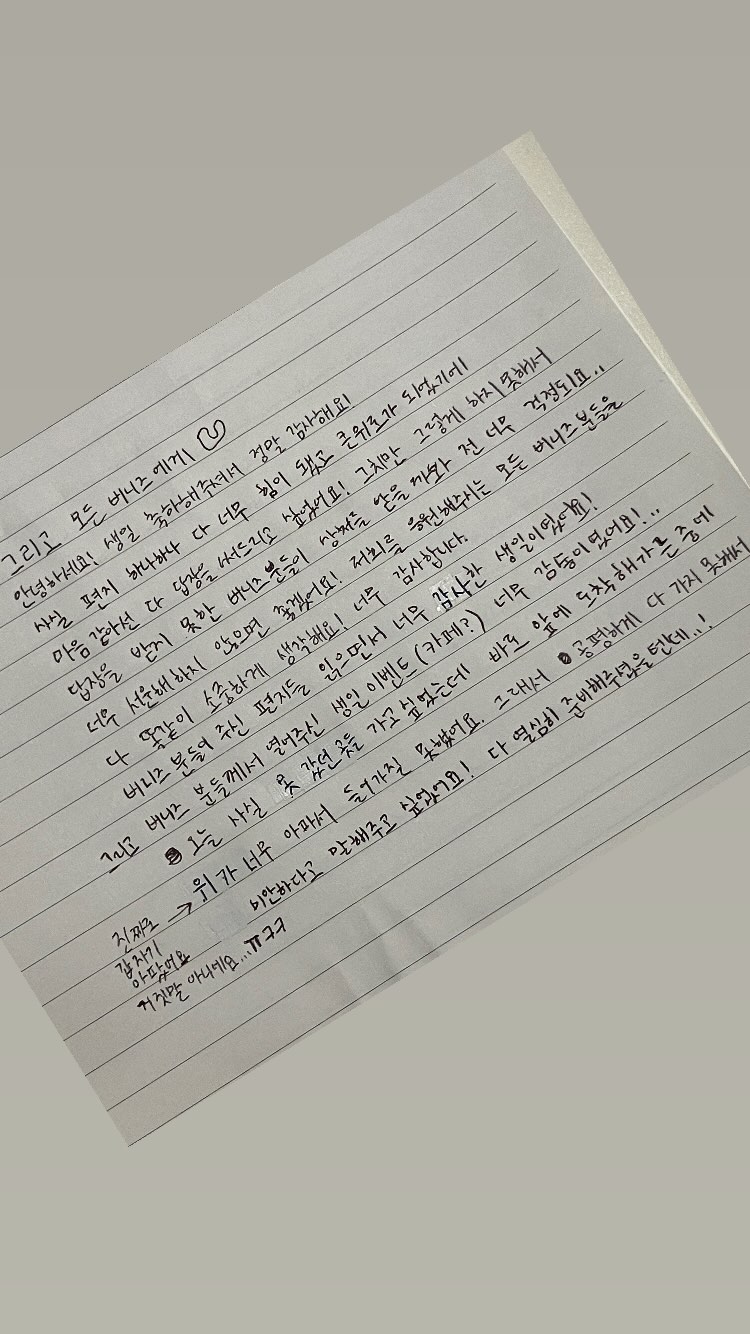 그리고 모든 버니즈에게!
안녕하세요! 생일 축하해주셔서 정말 감사해요!
사실 편지 하나하나 다 너무 힘이 됐고 큰위로가 되었기에
마음 같아선 다 답장을 써드리고 싶었어요! 그치만 그렇게 하지 못해서
답장을 받지 못한 버니즈분들이 상처를 받을까봐 전 너무 걱정되요..
너무 서운해하지 않으면 좋겠어요! 저희를 응원해주시는 모든 버니즈분들을
다 똑같이 소중하게 생각해요! 너무 감사합니다.
버니즈 분들이 주신 편지들 읽으면서 너무 감사한 생일이었어요!
그리고 버니즈 분들께서 열어주신 생일 이벤트(카페?) 너무 감동이였어요!..
오늘 사실 못 갔던 곳들 가고 싶었는데 바로 앞에 도착해가는 중에
위가 너무 아파서 들어가질 못했어요. 그래서 공평하게 다 가지 못해서
미안하다고 말해주고 싶었어요! 다 열심히 준비해주셨을텐데..!
진짜로 →
갑자기
아팠어요
거짓말 아니에요...ㅠㅋㅋ